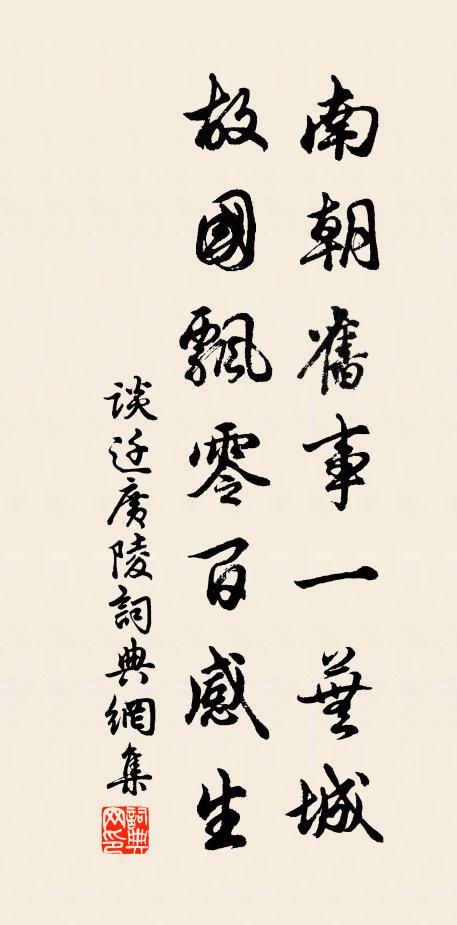 南朝舊事一蕪城
故國飄零百感生
談迁廣陵詞典網集
詞典网印